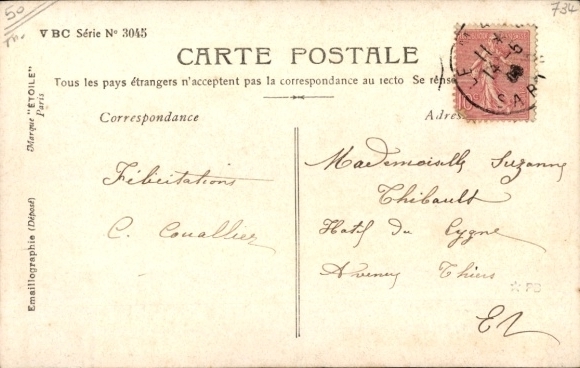 50
734
V B C Série Nº 3045
CARTE POSTALE
Tous les pays étrangers n'acceptent pas la correspondance au recto Se rense
Correspondance
Adres
Marque "ÉTOILE" Paris
Emaillographie (Déposé)
Félicitations
C.
Mademoiselle Suzanne
Thibault
Hotel du Cygne
Thiers
E V
11
14
SART
☆ PB